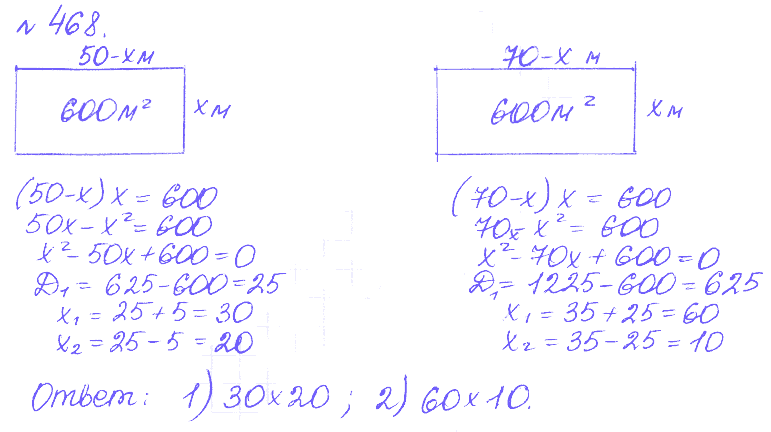 № 468.
50-x м
600 м²
x м
(50-x) x = 600
50x - x² = 600
x² - 50x + 600 = 0
D₁ = 625 - 600 = 25
x₁ = 25 + 5 = 30
x₂ = 25 - 5 = 20
70-x м
600 м²
x м
(70-x) x = 600
70x - x² = 600
x² - 70x + 600 = 0
D₁ = 1225 - 600 = 625
x₁ = 35 + 25 = 60
x₂ = 35 - 25 = 10
Ответ: 1) 30 x 20 ; 2) 60 x 10.